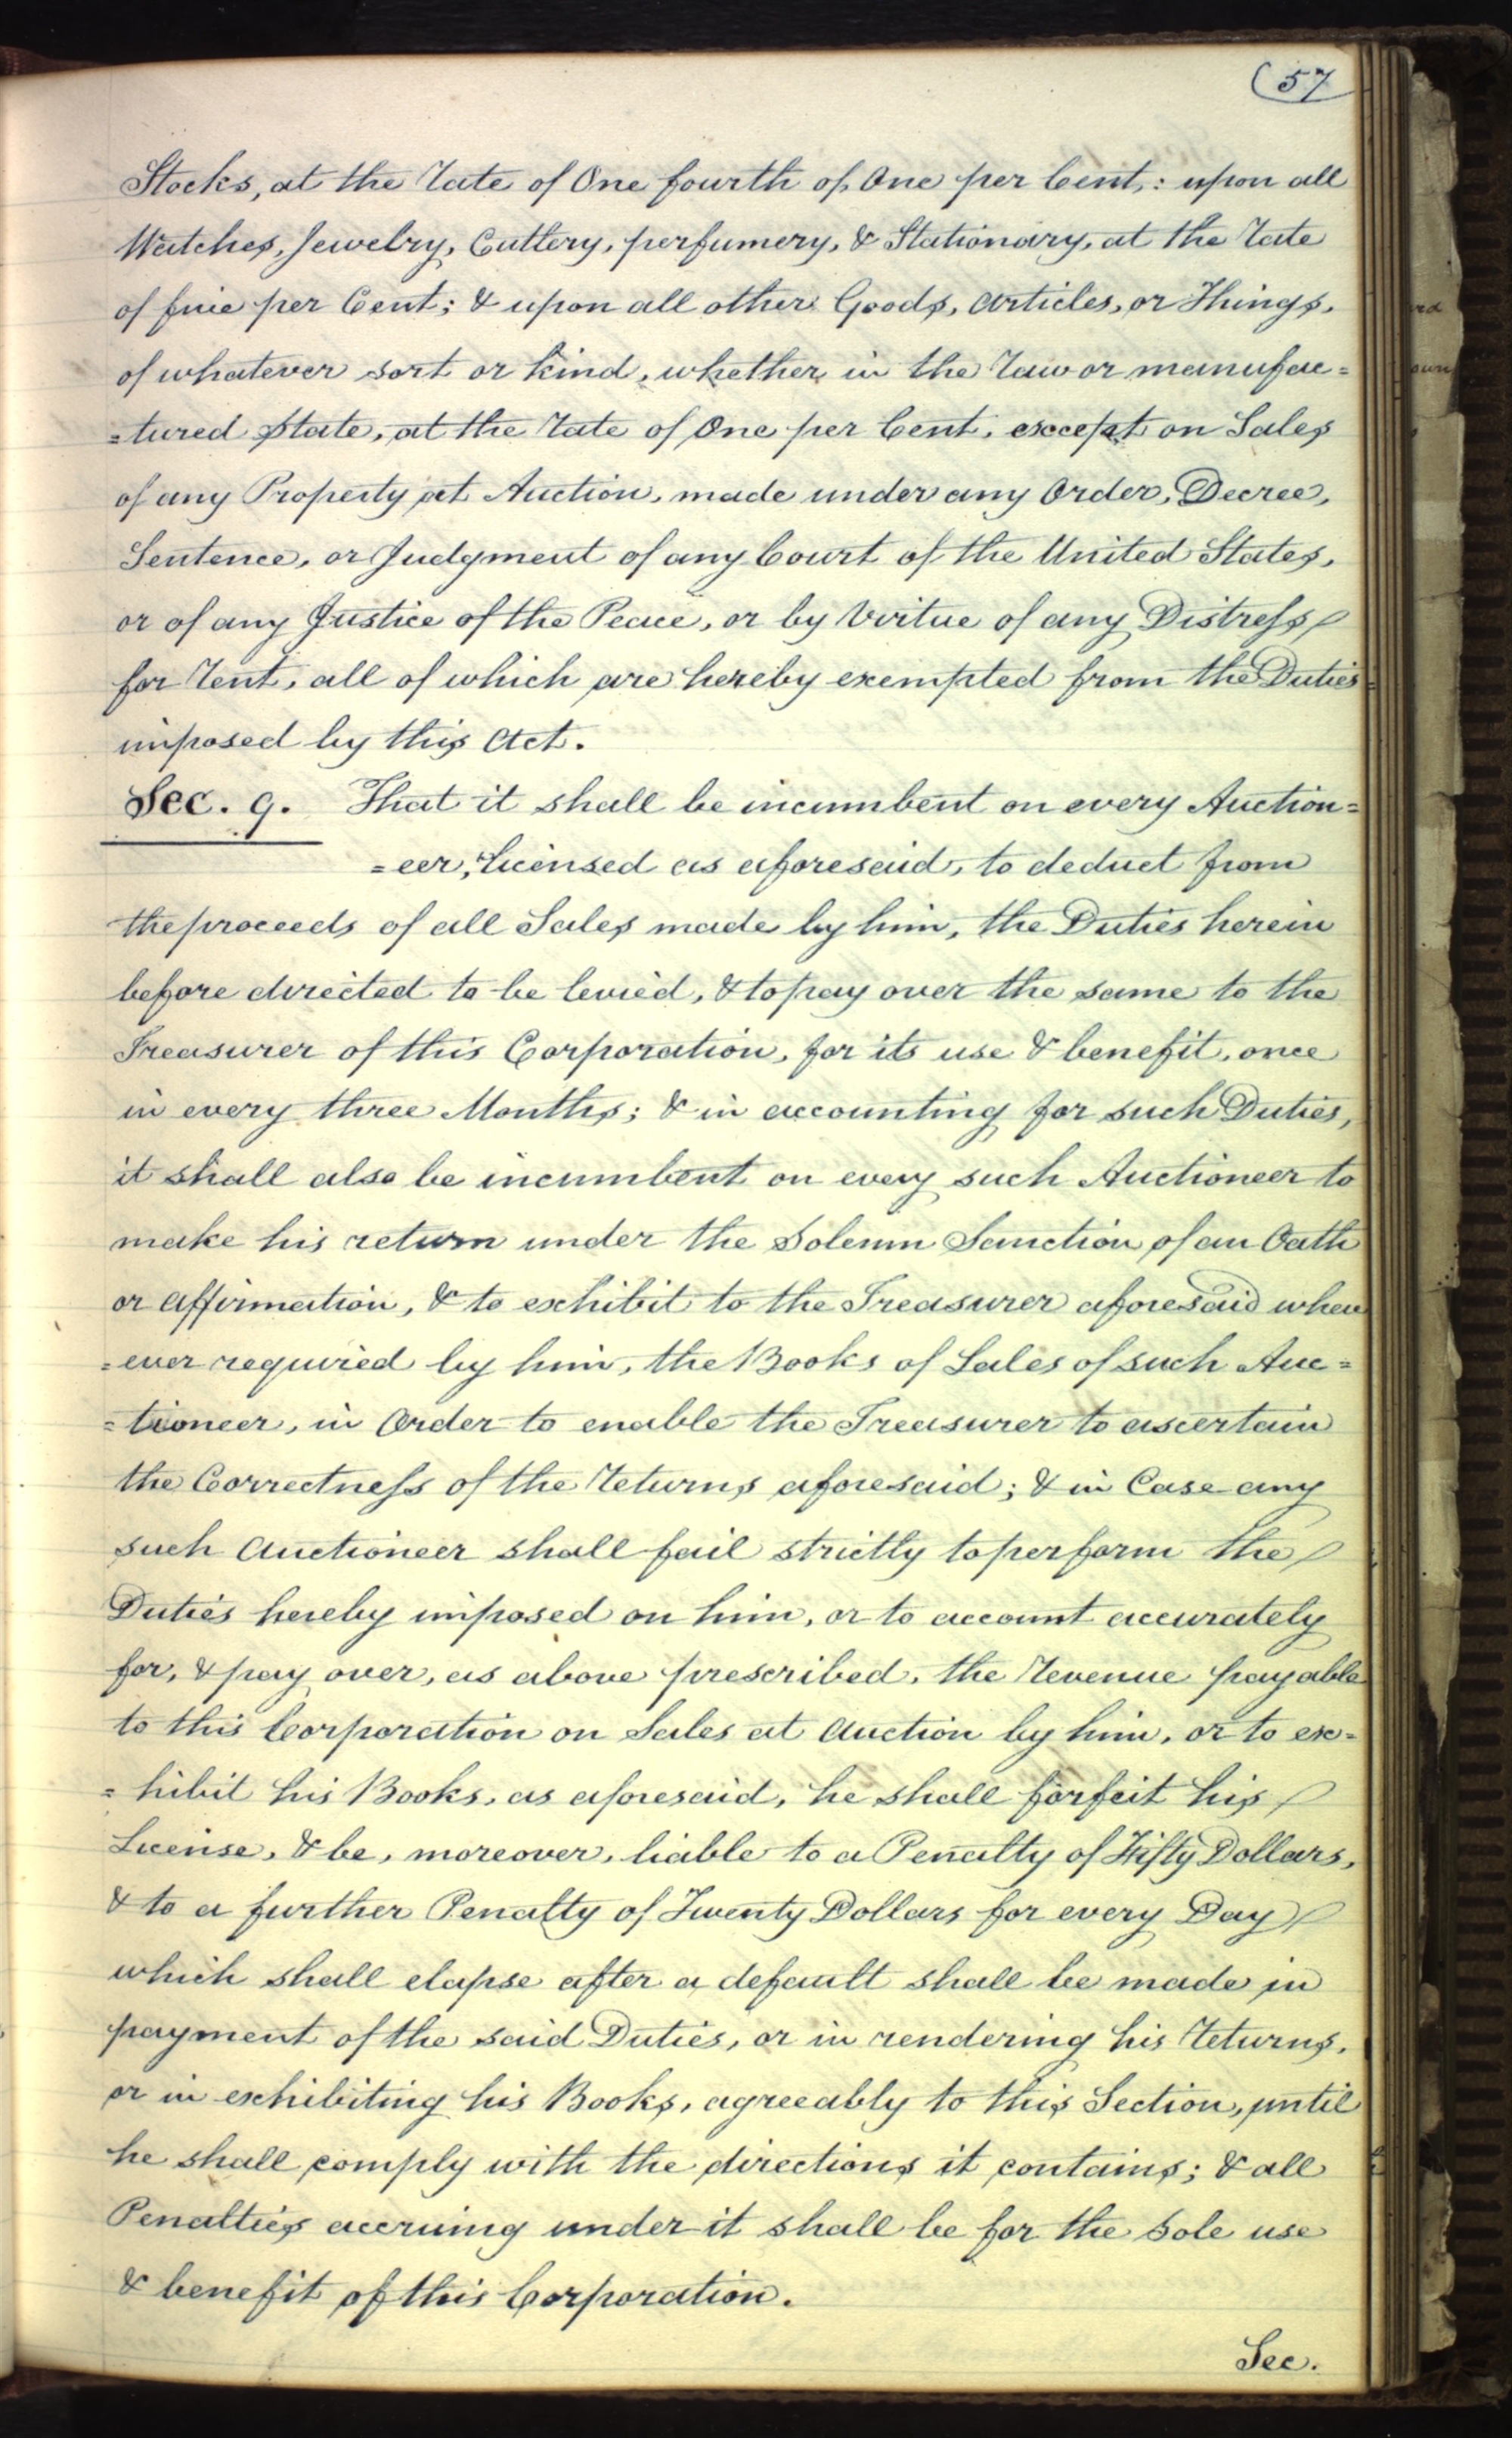 (57
Stocks, at the rate of One fourth of One per Cent,: upon all
Watches, Jewelry, Cuttery, perfumery, & Stationary, at the rate
of five per Cent; & upon all other Goods, Articles, or Things,
of whatever sort or kind, whether in the raw or manufac=
=tured State, at the rate of One per Cent, except on Sales
of any Property at Auction, made under any Order, Decree,
Sentence, or Judgment of any Court of the United States,
or of any Justice of the Peace, or by Virtue of any Distress
for rent, all of which are hereby exempted from the Duties
imposed by this Act.
Sec. 9. That it shall be incumbent on every Auction=
=eer, licensed as aforesaid, to deduct from
the proceeds of all Sales made by him, the Duties herein
before directed to be levied, & to pay over the same to the
Treasurer of this Corporation, for its use & benefit, once
in every three Months; & in accounting for such Duties,
it shall also be incumbent on every such Auctioneer to
make his return under the Solemn Sanction of an Oath
or affirmation, & to exhibit to the Treasurer aforesaid when
=ever required by him, the Books of Sales of such Auc=
=tioneer, in Order to enable the Treasurer to ascertain
the Correctness of the returns aforesaid; & in Case any
such Auctioneer shall fail strictly to perform the
Duties hereby imposed on him, or to account accurately
for, & pay over, as above prescribed, the revenue payable
to this Corporation on Sales at Auction by him, or to ex=
=hibit his Books, as aforesaid, he shall forfeit his
License, & be, moreover, liable to a Penalty of Fifty Dollars,
& to a further Penalty of Twenty Dollars for every Day
which shall elapse after a default shall be made in
payment of the said Duties, or in rendering his returns,
or in exhibiting his Books, agreeably to this Section, until
he shall comply with the directions it contains; & all
Penalties accruing under it shall be for the Sole use
& benefit of this Corporation.
Sec.